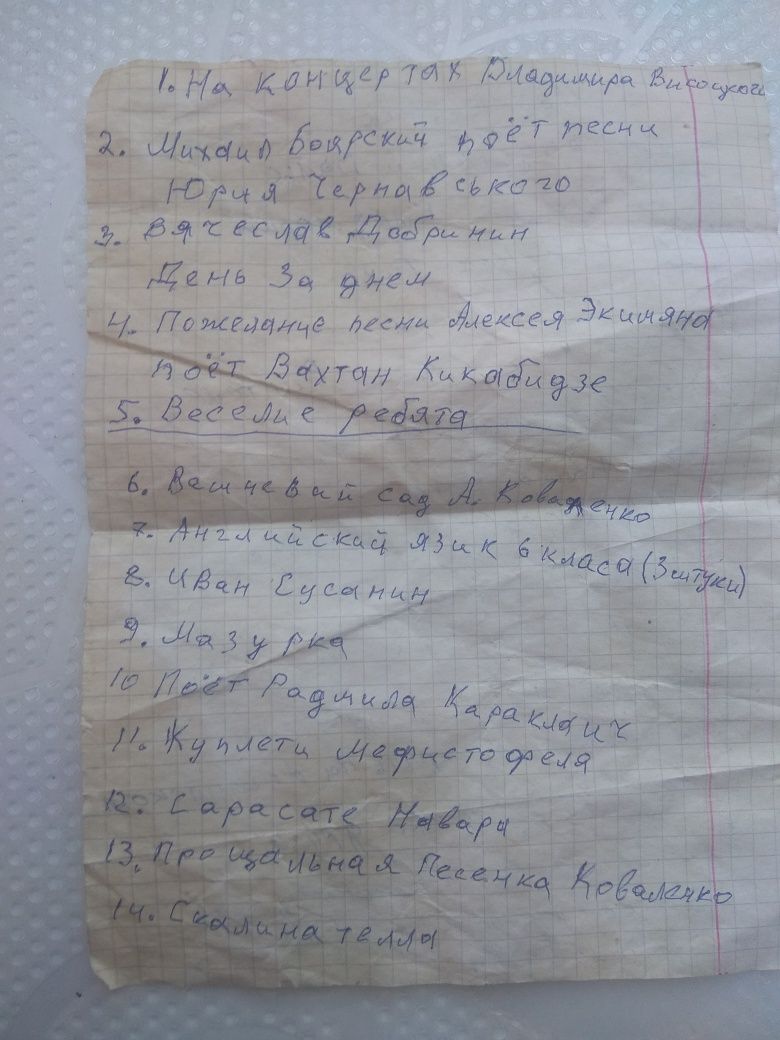 1. На концертах Владимира Висоцкого
2. Михаил Боярский поёт песни
Юрия Чернавського
3. Вячеслав Добринин
День За днем
4. Пожелание песни Алексея Экимяна
поёт Вахтан Кикабидзе
5. Веселие ребята
6. Вешневий сад А. Коваленко
7. Английский язик 6 класа (3 штуки)
8. Иван Сусанин
9. Мазурка
10 Поёт Радмила Караклаич
11. Куплети Мефистофеля
12. Сарасате Навара
13. Прощальная Песенка Коваленко
14. Скалинателла